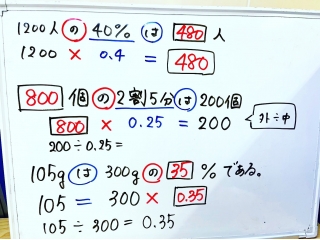 1200人の40%は480人
1200 × 0.4 = 480
800個の2割5分は200個
800 × 0.25 = 200
外÷中
200÷0.25=
105gは300gの35%である。
105 = 300 × 0.35
105 ÷ 300 = 0.35